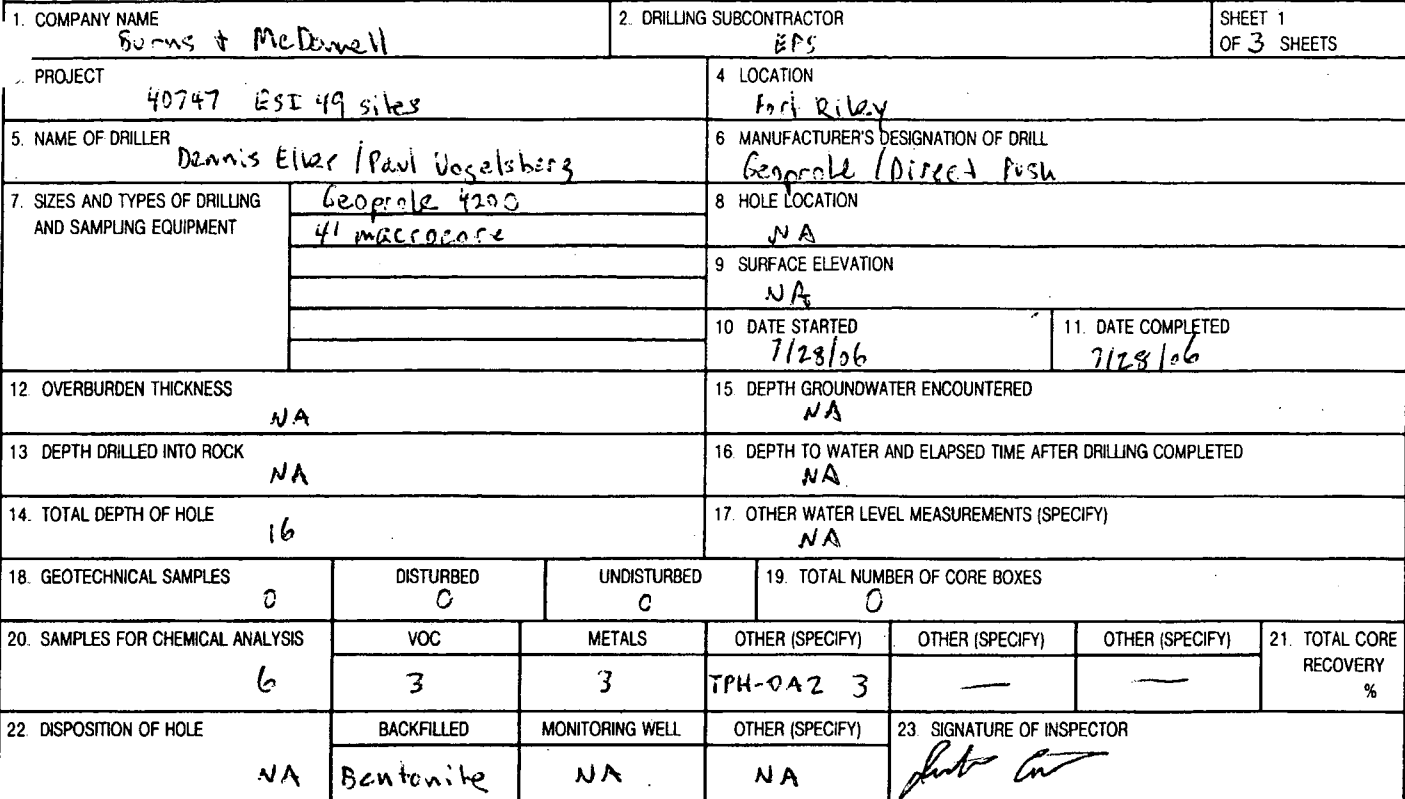 1. COMPANY NAME
Burns & McDonnell
2. DRILLING SUBCONTRACTOR
EPS
SHEET 1
OF 3 SHEETS
PROJECT
40747 ESI 49 sites
4 LOCATION
Fort Riley
5. NAME OF DRILLER
Dennis / Paul Vogelsberg
6 MANUFACTURER'S DESIGNATION OF DRILL
Geoprobe / Direct Push
7. SIZES AND TYPES OF DRILLING
AND SAMPLING EQUIPMENT
Geoprobe 4200
4' macrocore
8 HOLE LOCATION
NA
9 SURFACE ELEVATION
NA
10 DATE STARTED
7/28/06
11. DATE COMPLETED
7/28/06
12. OVERBURDEN THICKNESS
NA
15. DEPTH GROUNDWATER ENCOUNTERED
NA
13 DEPTH DRILLED INTO ROCK
NA
16. DEPTH TO WATER AND ELAPSED TIME AFTER DRILLING COMPLETED
NA
14. TOTAL DEPTH OF HOLE
16
17. OTHER WATER LEVEL MEASUREMENTS (SPECIFY)
NA
18. GEOTECHNICAL SAMPLES
0
DISTURBED
0
UNDISTURBED
0
19. TOTAL NUMBER OF CORE BOXES
0
20. SAMPLES FOR CHEMICAL ANALYSIS
6
VOC
3
METALS
3
OTHER (SPECIFY)
TPH-OA2 3
OTHER (SPECIFY)
—
OTHER (SPECIFY)
—
21. TOTAL CORE
RECOVERY
%
22. DISPOSITION OF HOLE
NA
BACKFILLED
Bentonite
MONITORING WELL
NA
OTHER (SPECIFY)
NA
23. SIGNATURE OF INSPECTOR